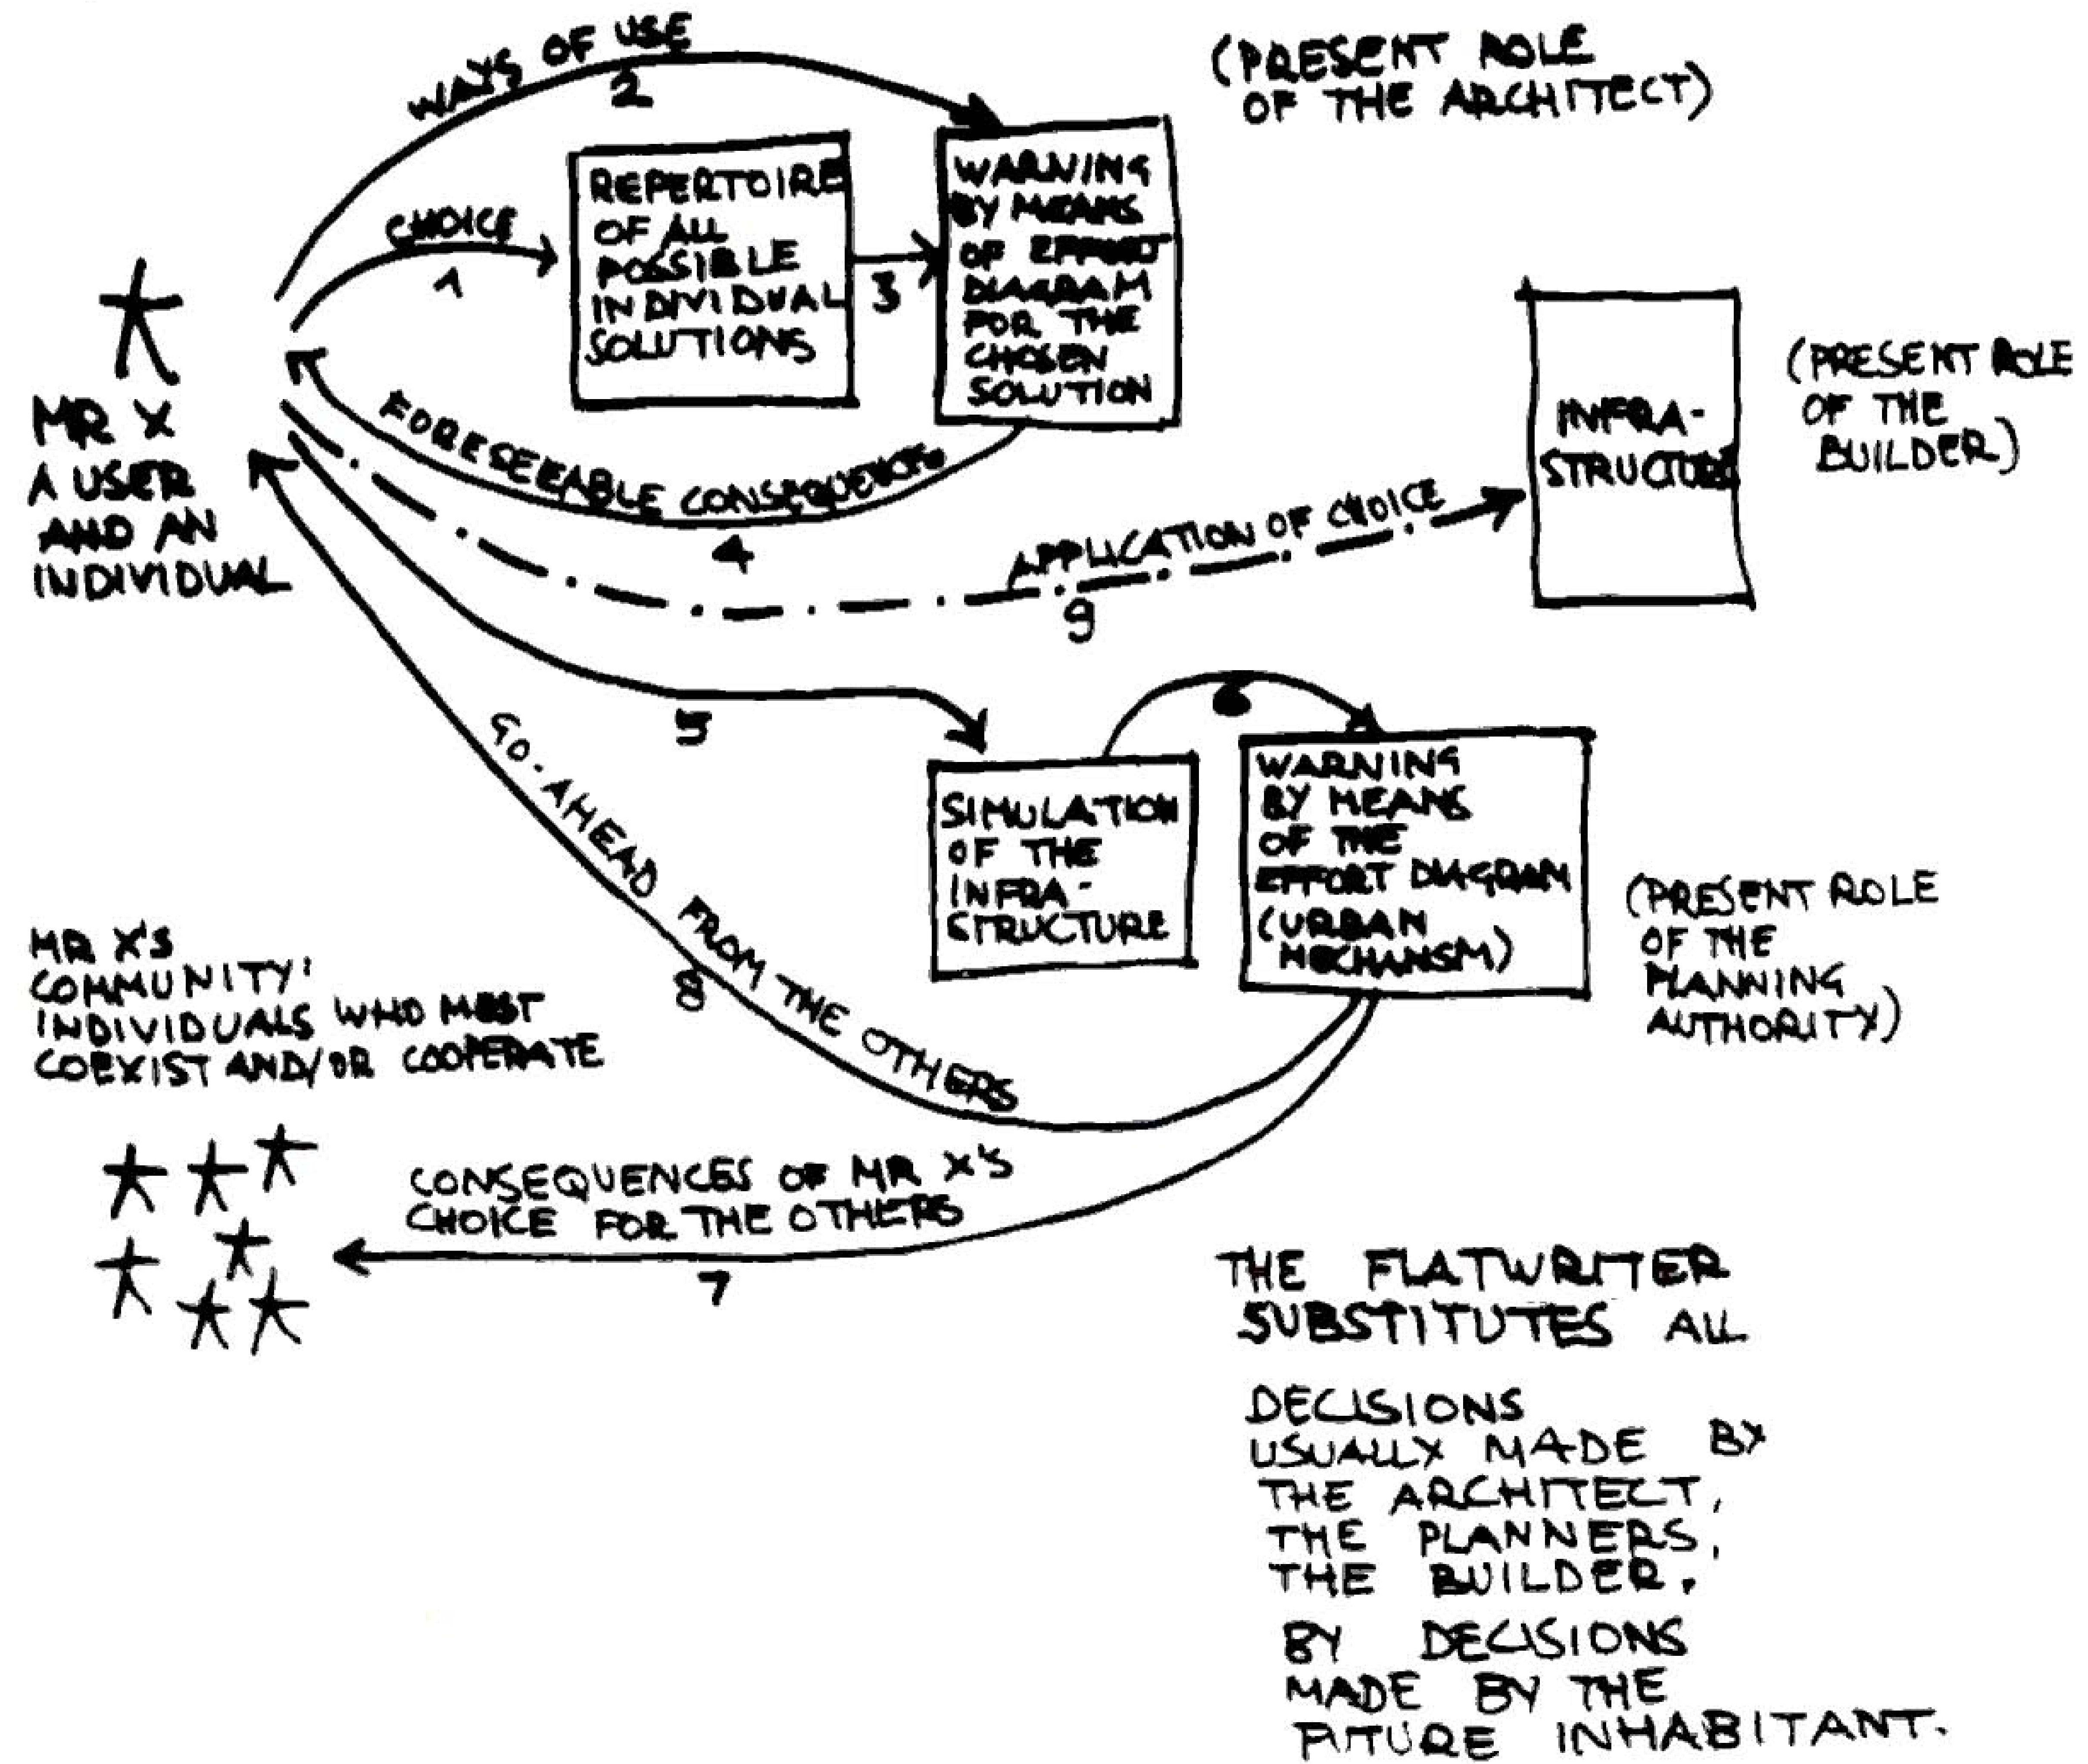 WAYS OF USE
2
(PRESENT ROLE
OF THE ARCHITECT)
CHOICE
1
REPERTOIRE
OF ALL
POSSIBLE
INDIVIDUAL
SOLUTIONS
3
WARNING
BY MEANS
OF EFFORT
DIAGRAM
FOR THE
CHOSEN
SOLUTION
MR X
A USER
AND AN
INDIVIDUAL
FORESEEABLE CONSEQUENCES
4
INFRA-
STRUCTURE
(PRESENT ROLE
OF THE
BUILDER)
APPLICATION OF CHOICE
9
5
6
SIMULATION
OF THE
INFRA-
STRUCTURE
WARNING
BY MEANS
OF THE
EFFORT DIAGRAM
(URBAN
MECHANISM)
(PRESENT ROLE
OF THE
PLANNING
AUTHORITY)
GO-AHEAD FROM THE OTHERS
8
MR X'S
COMMUNITY:
INDIVIDUALS WHO MUST
COEXIST AND/OR COOPERATE
CONSEQUENCES OF MR X'S
CHOICE FOR THE OTHERS
7
THE FLATWRITER
SUBSTITUTES ALL
DECISIONS
USUALLY MADE BY
THE ARCHITECT,
THE PLANNERS,
THE BUILDER.
BY DECISIONS
MADE BY THE
FUTURE INHABITANT.